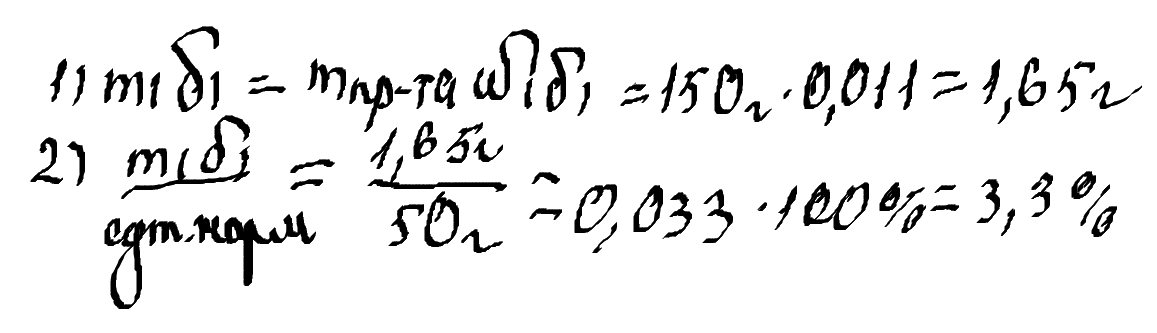 1) m(б) = mпр-та ω(б) = 150г · 0,011 = 1,65г
2) m(б) / сут.норм = 1,65г / 50г = 0,033 · 100% = 3,3%